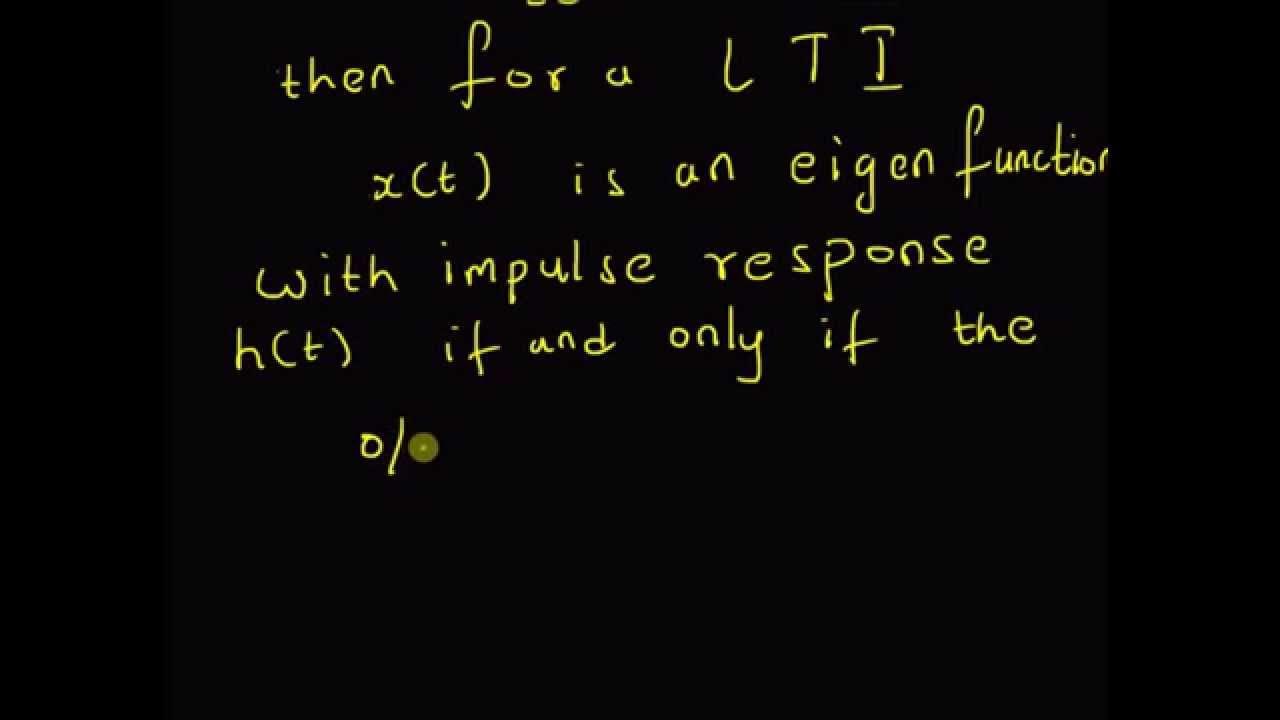 then for a LTI
x(t) is an eigen function
with impulse response
h(t) if and only if the
o/